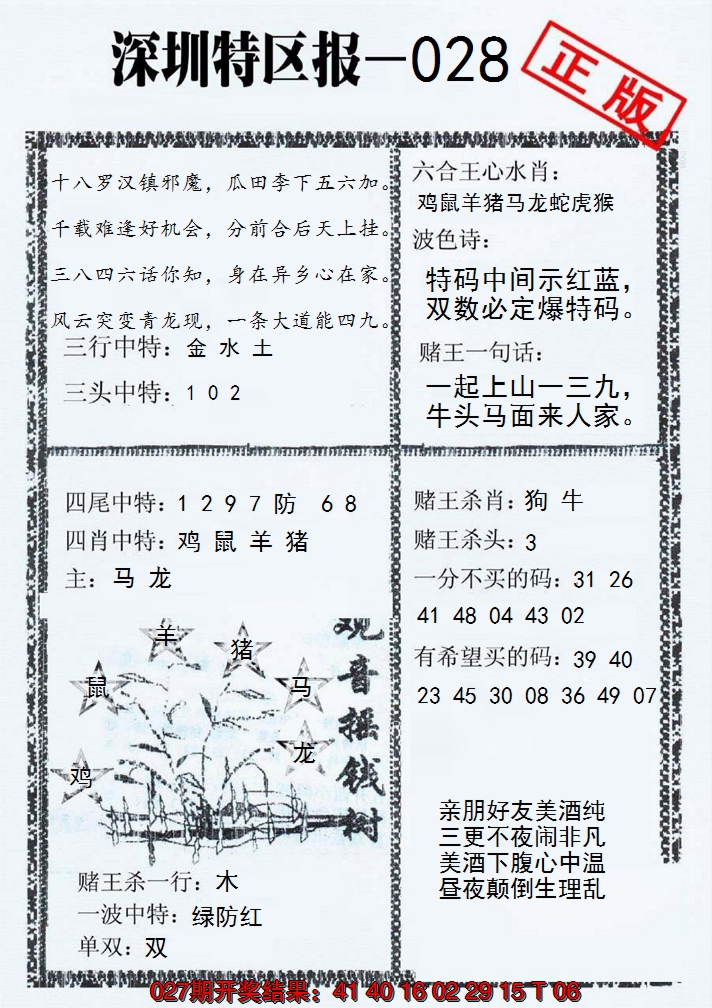 深圳特区报—028
正版
十八罗汉镇邪魔，瓜田李下五六加。
千载难逢好机会，分前合后天上挂。
三八四六话你知，身在异乡心在家。
风云突变青龙现，一条大道能四九。
三行中特：金 水 土
三头中特：1 0 2
六合王心水肖：
鸡鼠羊猪马龙蛇虎猴
波色诗：
特码中间示红蓝，
双数必定爆特码。
赌王一句话：
一起上山一三九，
牛头马面来人家。
四尾中特：1 2 9 7 防 6 8
四肖中特：鸡 鼠 羊 猪
主：马 龙
羊
猪
鼠
马
龙
鸡
观音摇钱树
赌王杀一行：木
一波中特：绿防红
单双：双
赌王杀肖：狗 牛
赌王杀头：3
一分不买的码：31 26
41 48 04 43 02
有希望买的码：39 40
23 45 30 08 36 49 07
亲朋好友美酒纯
三更不夜闹非凡
美酒下腹心中温
昼夜颠倒生理乱
027期开奖结果：41 40 16 02 29 15 T 06